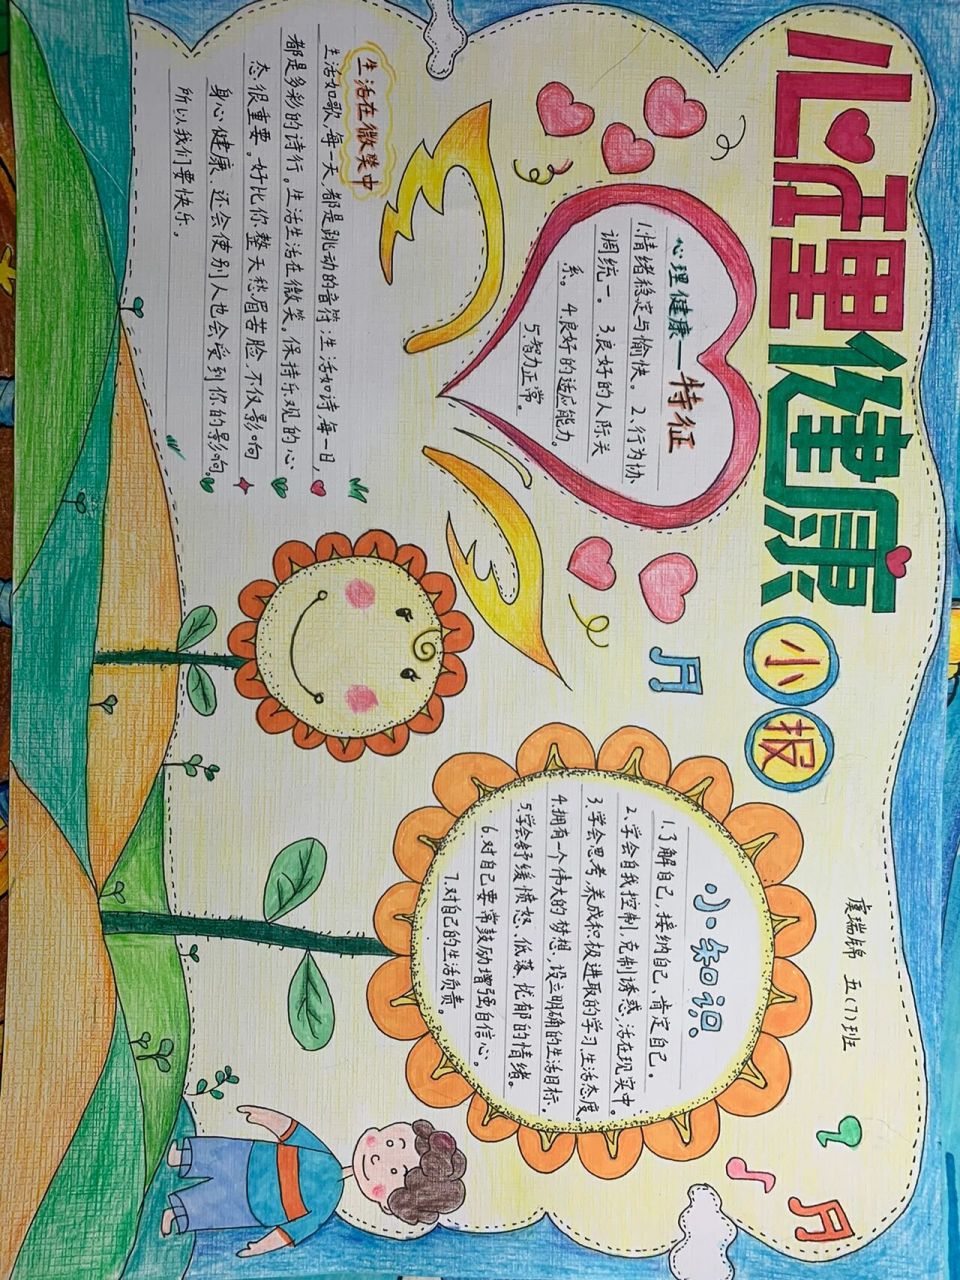 心理健康
小报
虞瑞锦 五(7)班
心理健康—特征
1.情绪稳定与愉快。2.行为协
调统一。 3.良好的人际关
系。 4.良好的适应能力。
5.智力正常。
生活在微笑中
生活如歌,每一天、都是跳动的音符;生活如诗,每一日,
都是多彩的诗行。生活生活在微笑。保持乐观的心
态,很重要。好比你整天愁眉苦脸,不仅影响
身心健康、还会使别人也会受到你的影响。
所以我们要快乐。
小知识
1.了解自己,接纳自己、肯定自己。
2、学会自我控制,克制诱惑,活在现实中。
3.学会思考,养成积极进取的学习生活态度。
4.拥有一个伟大的梦想,设立明确的生活目标。
5.学会舒缓愤怒、低落、忧郁的情绪。
6.对自己要常鼓励增强自信心。
7.对自己的生活负责。